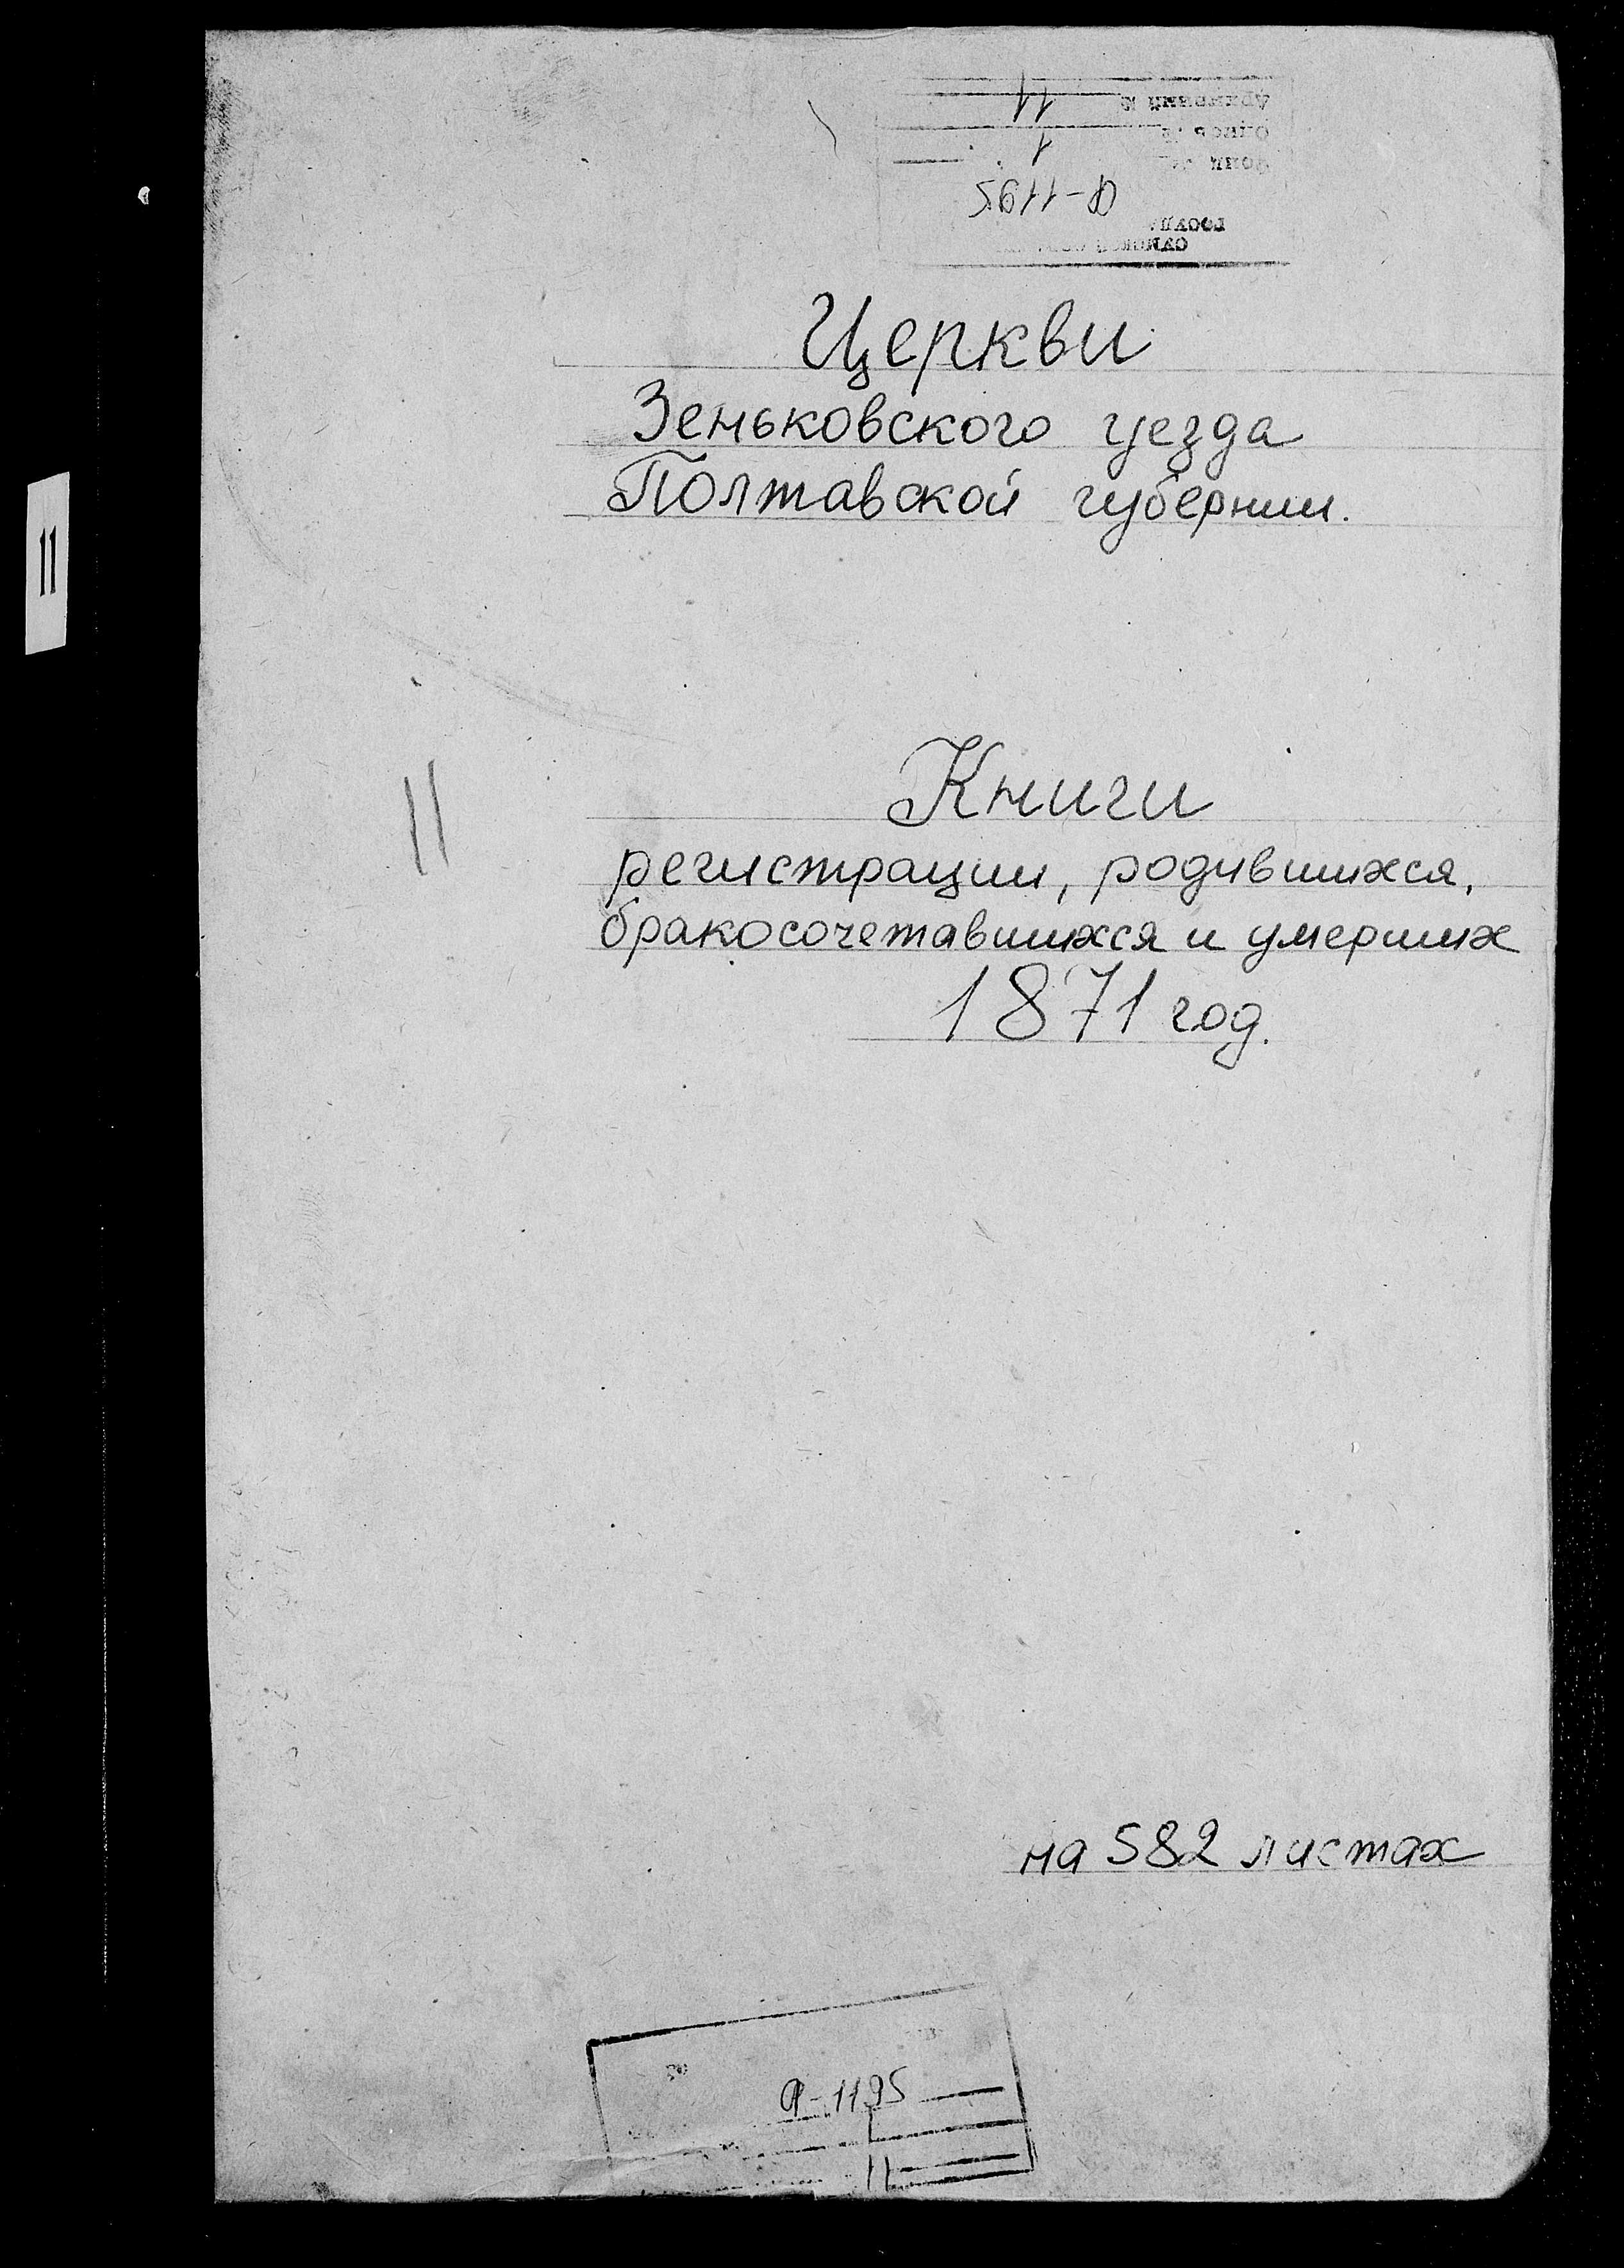 11
1
Ф-1195
Церкви
Зеньковского уезда
Полтавской губернии.
11
11
Книги
регистрации, родившихся,
бракосочетавшихся и умерших
1871 год.
на 582 листах
Ф-1195
1
11